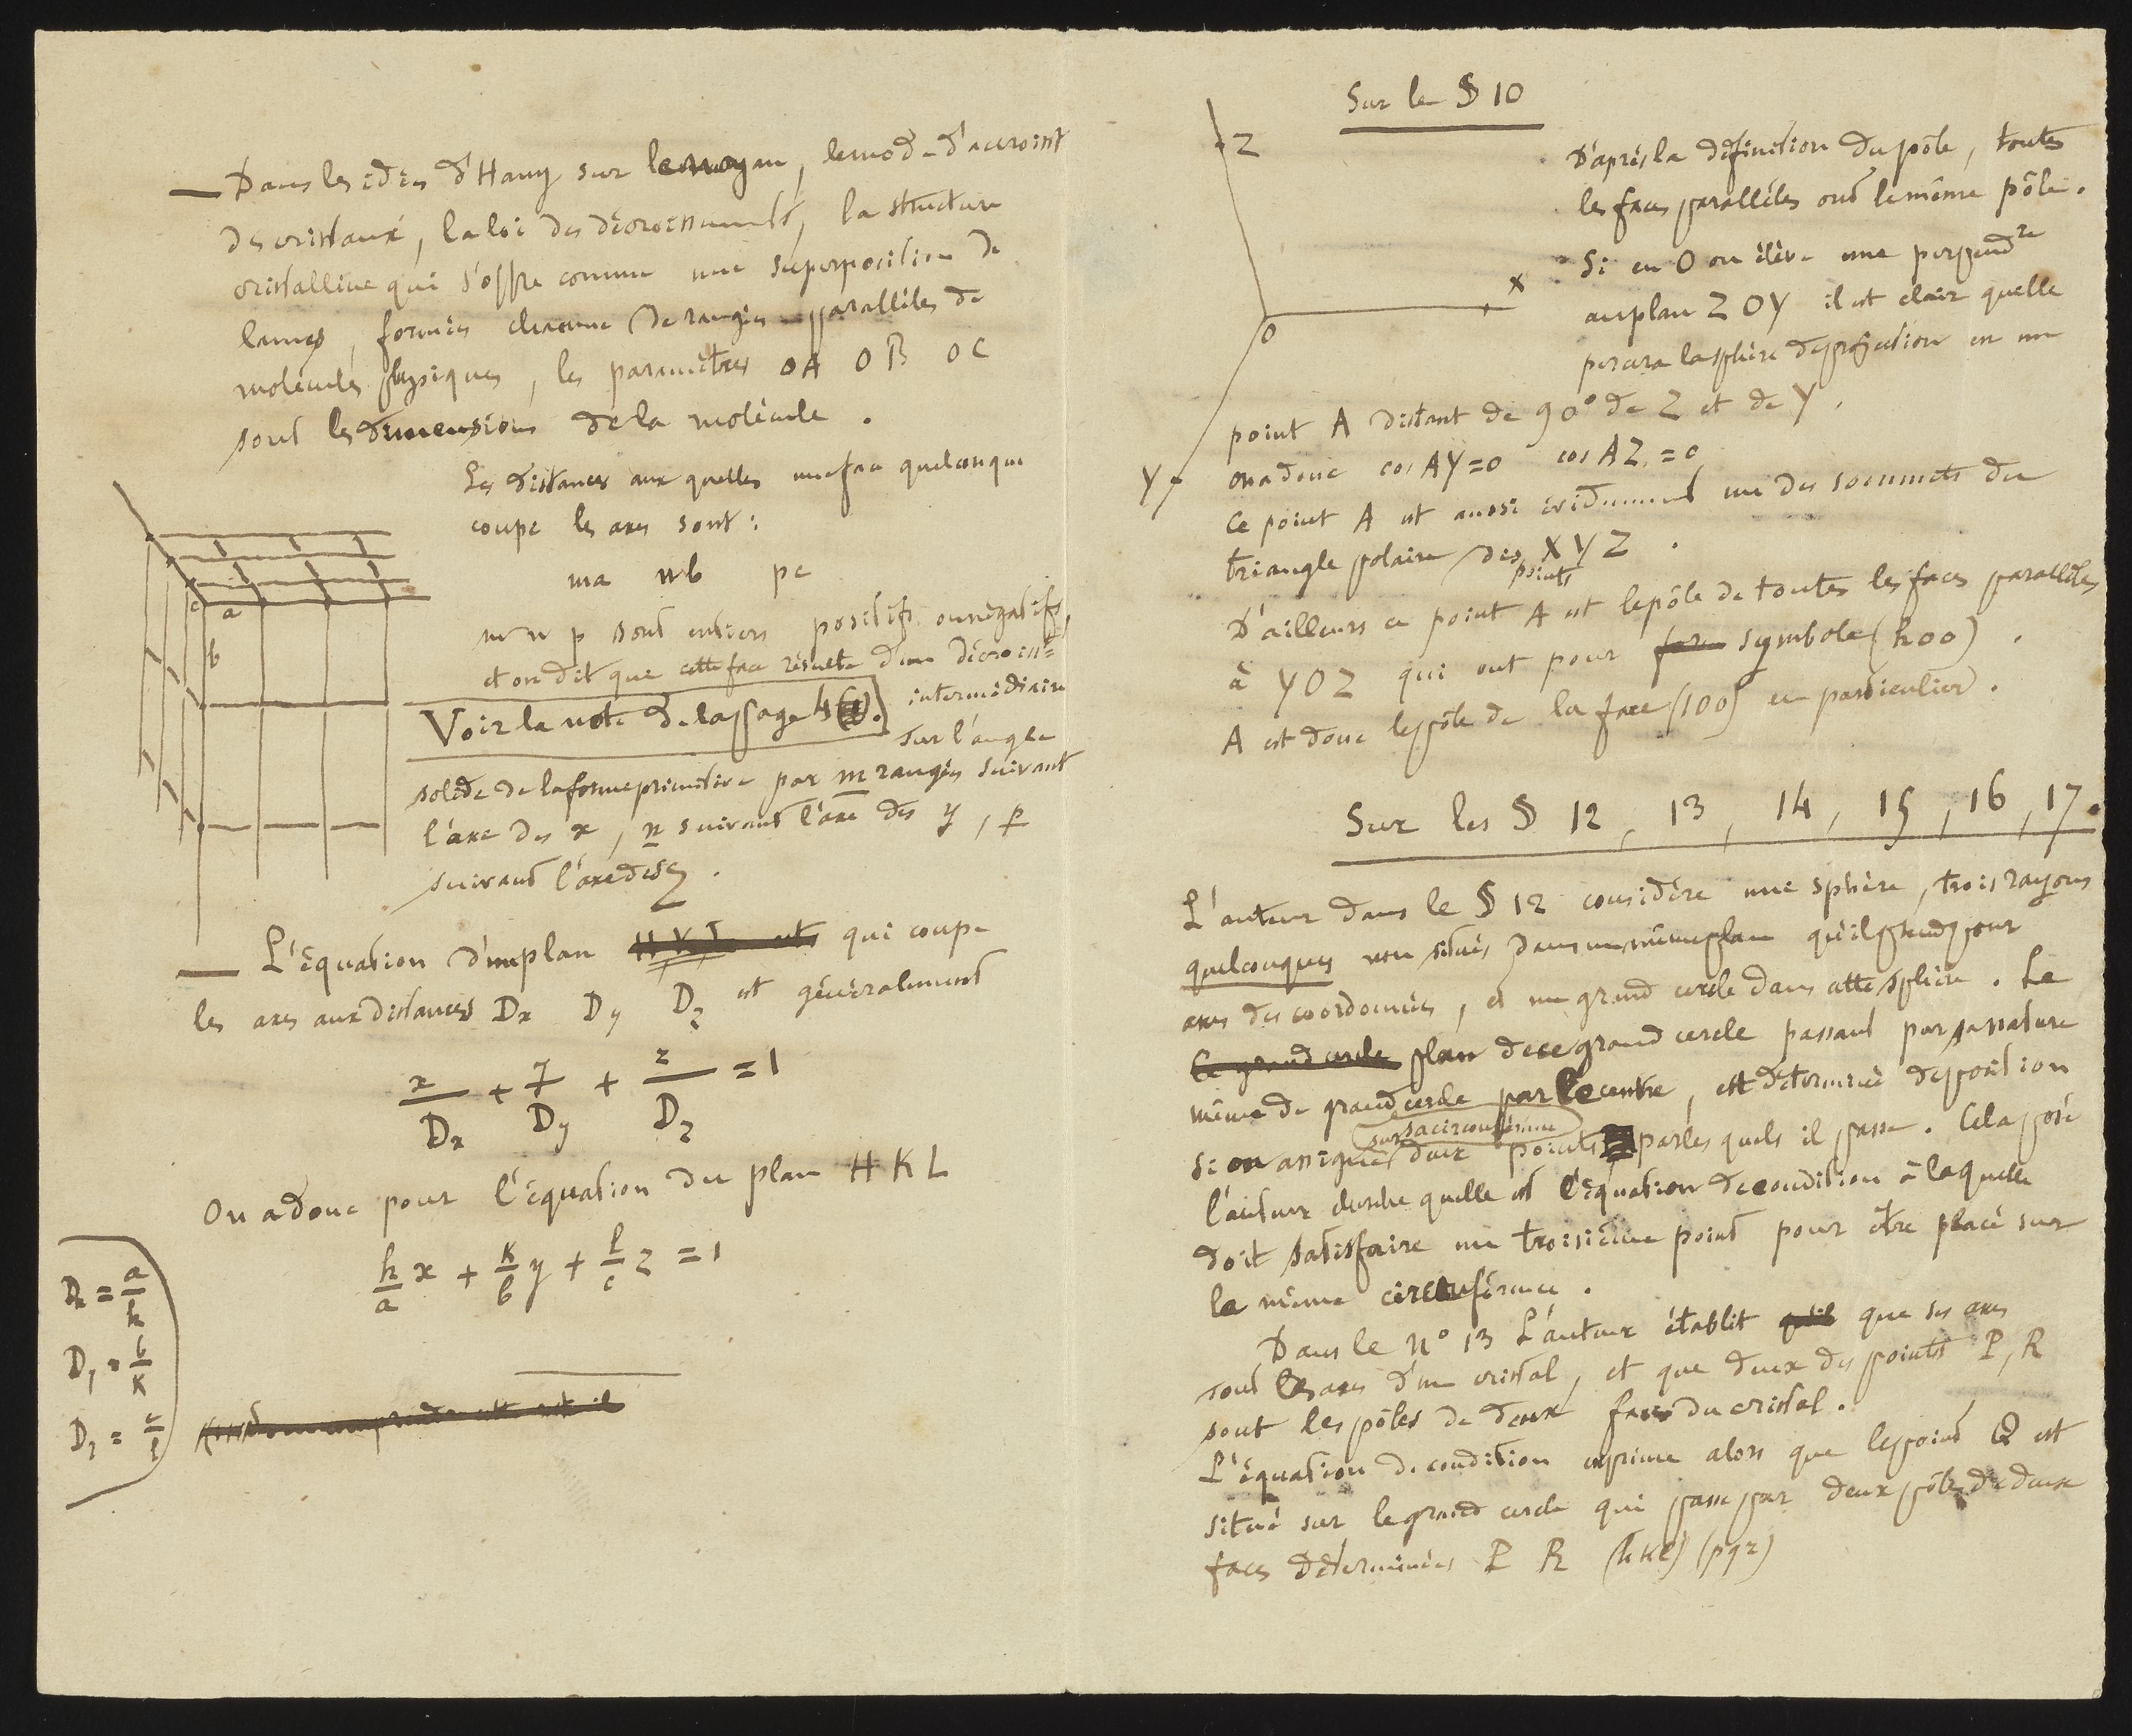 — Dans les idées d'Hauy sur le noyau, le mode d'accroisst
des cristaux, la loi des décroissements, la structure
cristalline qui s'offre comme une superposition de
lames, formées chacune de rangées parallèles de
molécules physiques, les paramètres OA OB OC
sont les dimensions de la molécule.
Les distances aux quelles une face quelconque
coupe les axes sont:
ma nb pc
c a
b
m n p sont entiers positifs ou négatifs,
et on dit que cette face résulte d'un décroisst
intermédiaire
Voir la note de la page 4
sur l'angle
solide de la forme primitive par m rangées suivant
l'axe des x, n suivant l'axe des y, p
suivant l'axe des z.
— L'équation d'un plan HKL qui coupe
les axes aux distances Dx Dy Dz est généralement
x/Dx + y/Dy + z/Dz = 1
On a donc pour l'équation du plan HKL
h/a x + k/b y + l/c z = 1
Dx = a/h
Dy = b/k
Dz = c/l
Sur le § 10
Z
X
O
Y
D'après la définition du pôle, toutes
les faces parallèles ont le même pôle.
Si en O on élève une perpendre
au plan ZOY il est clair quelle
percera la sphère de projection en un
point A distant de 90° de Z et de Y.
on a donc cos AY=0 cos AZ=0
Ce point A est aussi évidemment un des sommets du
triangle polaire des points XYZ.
D'ailleurs ce point A est le pôle de toutes les faces parallèles
à YOZ qui ont pour symbole (h00).
A est donc le pôle de la face (100) en particulier.
Sur les § 12, 13, 14, 15, 16, 17.
L'auteur dans le § 12 considère une sphère, trois rayons
quelconques non situés dans un même plan qu'il prend pour
axes des coordonnées, et un grand cercle dans cette sphère. Le
Ce grand cercle plan de ce grand cercle passant par sa nature
même de grand cercle par le centre, est déterminé de position
sur sa circonférence
si on assigne deux points par les quels il passe. Cela posé
l'auteur cherche quelle est l'équation de condition à laquelle
doit satisfaire un troisième point pour être placé sur
la même circonférence.
Dans le n° 13 L'auteur établit qu'il que ses axes
sont les axes d'un cristal, et que deux des points P, R
sont les pôles de deux faces du cristal.
L'équation de condition exprime alors que le point Q est
situé sur le grand cercle qui passe par deux pôles de deux
faces déterminées P R (hkl) (pqr)